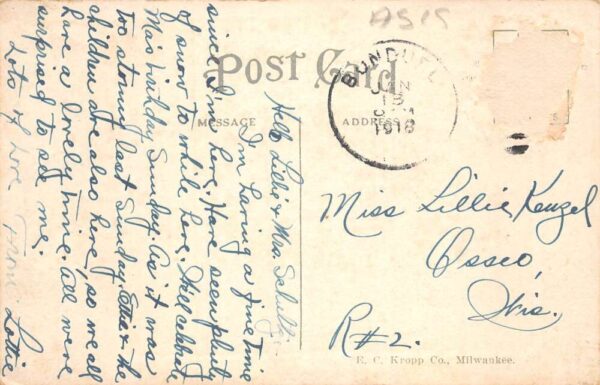 ASIS
Post Card
MESSAGE
ADDRESS
BONDUEL
JAN
13
1916
Hello Lillie & Mrs. Schultz:
I'm having a fine time
since I'm here. Have seen plenty
of snow to while here. Will celebrate
Ma's birthday Sunday. As it was
too stormy last Sunday. Elsie & the
children are also here, so we all
have a lovely time. All were
surprised to see me.
Lots of Love From Lottie
Miss Lillie Kenzel
Osseo,
Wis.
R#2.
E. C. Kropp Co., Milwaukee.